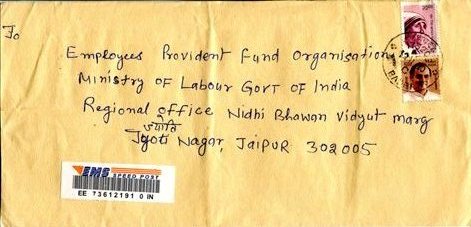 To
Employees Provident Fund Organisation
Ministry of Labour Govt of India
Regional office Nidhi Bhawan Vidyut marg
ज्योति
Jyoti Nagar, Jaipur 302005
EMS
SPEED POST
EE 73612191 0 IN